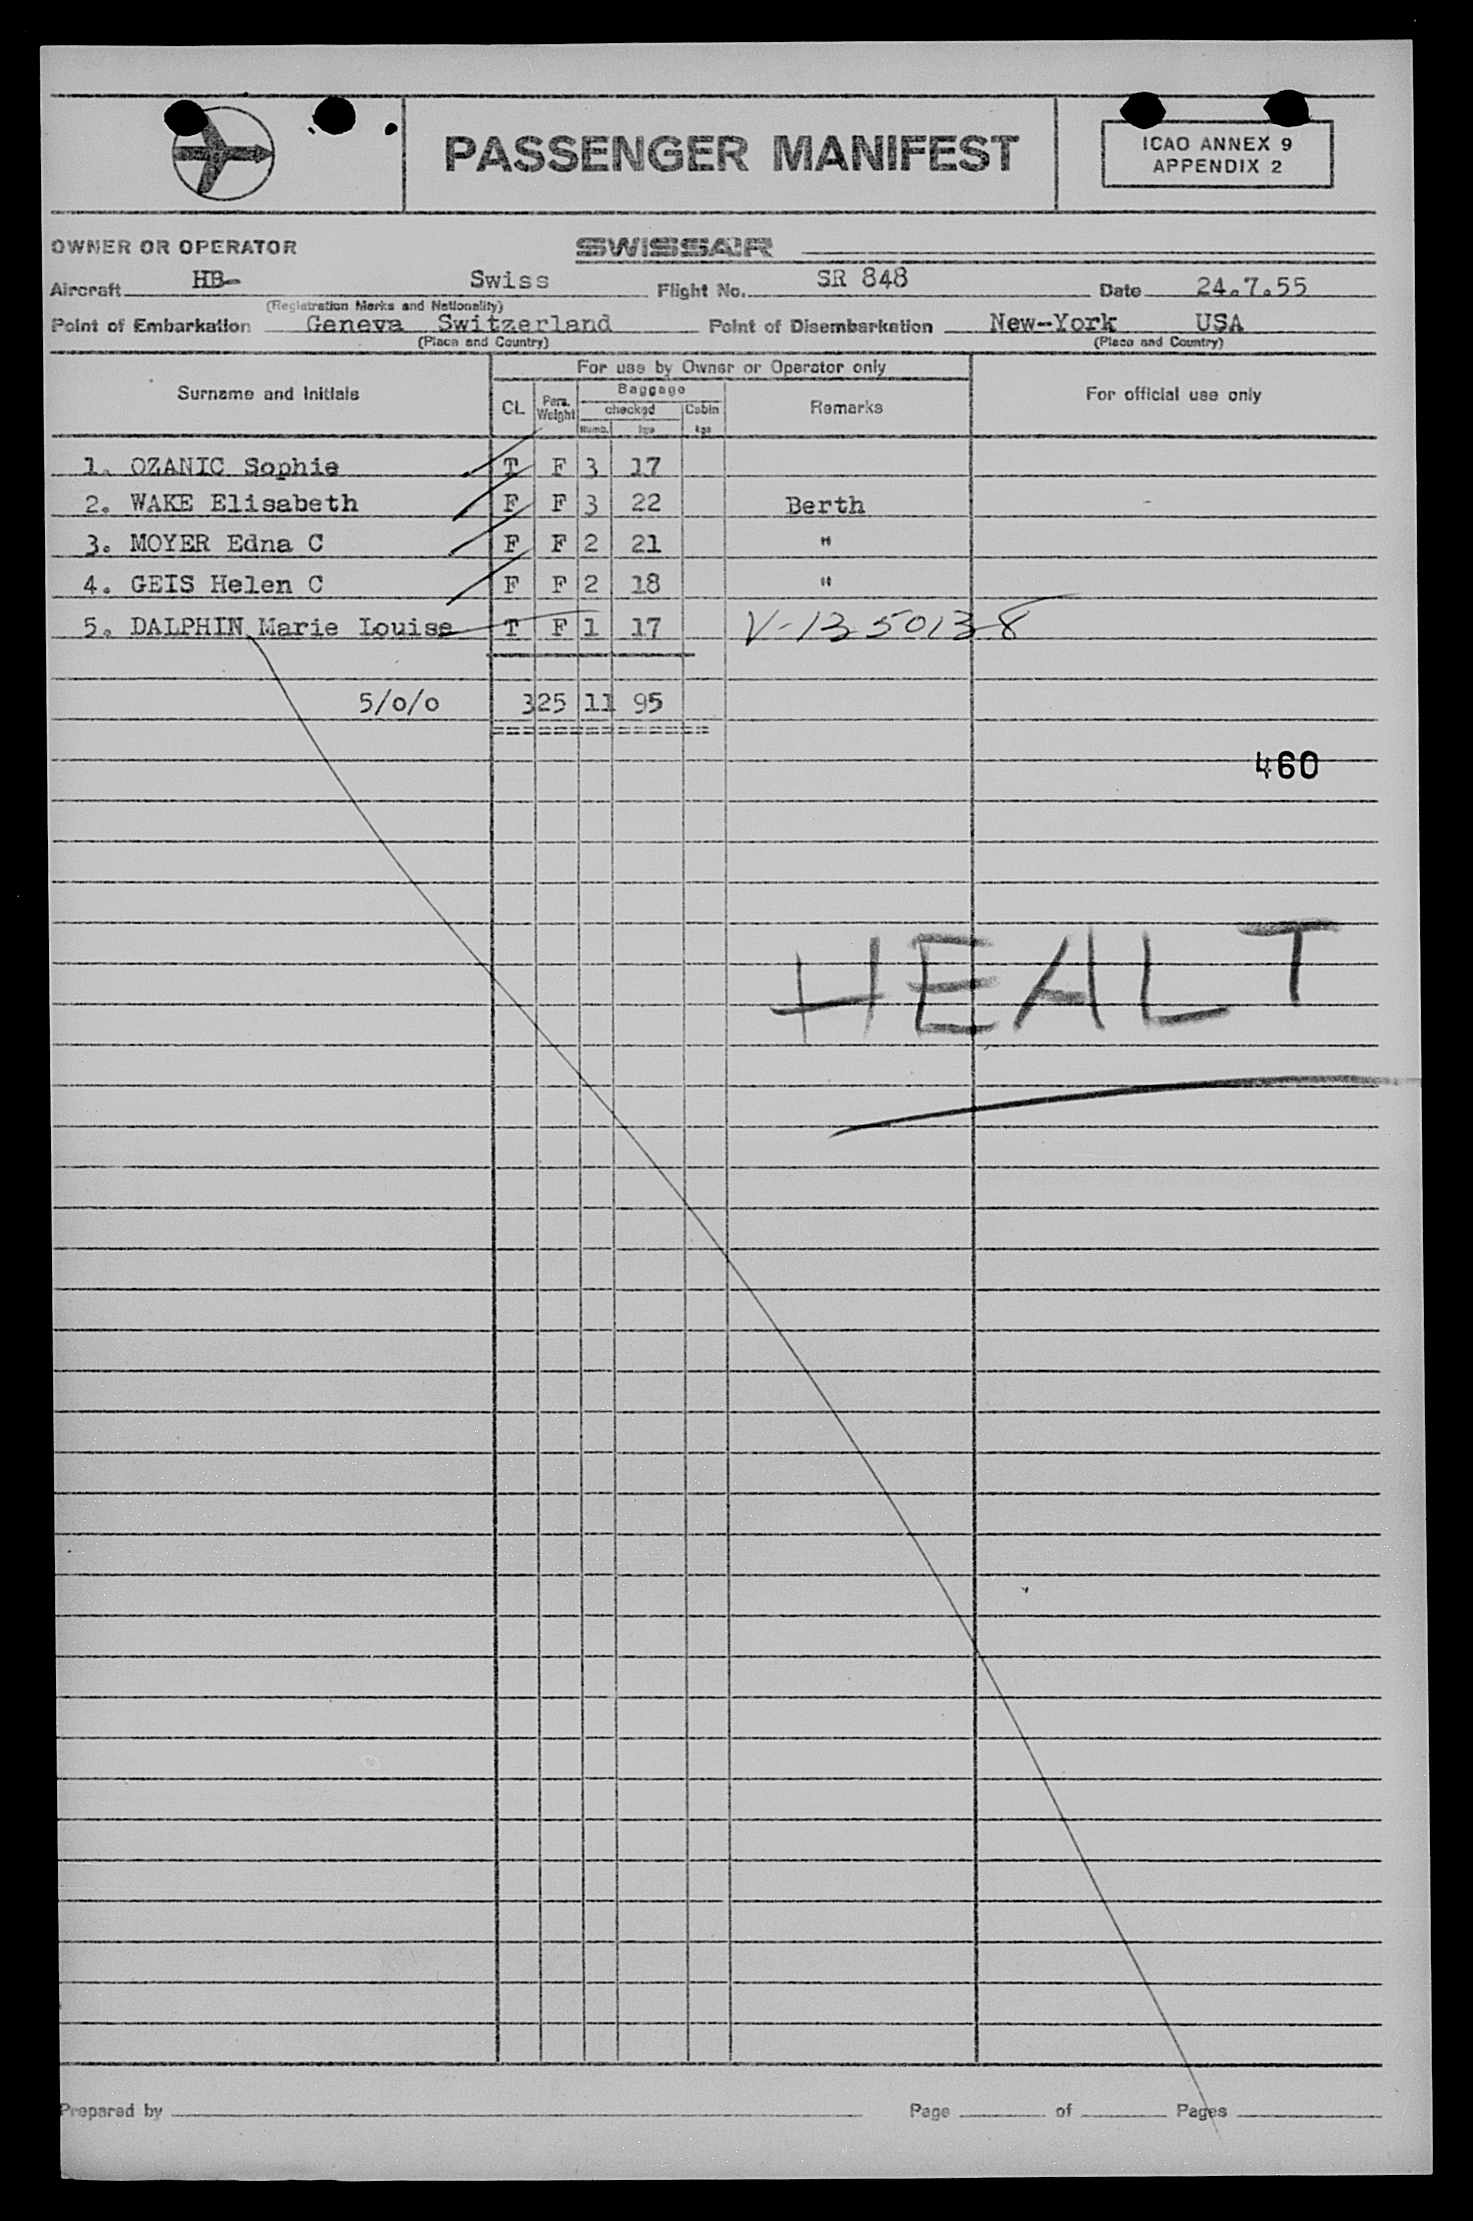 PASSENGER MANIFEST
ICAO ANNEX 9
APPENDIX 2
OWNER OR OPERATOR SWISSAIR
Aircraft HB- Swiss Flight No. SR 848 Date 24.7.55
(Registration Marks and Nationality)
Point of Embarkation Geneva Switzerland Point of Disembarkation New-York USA
(Place and Country) (Place and Country)
For use by Owner or Operator only
Surname and Initials CL Pers. Weight Baggage checked Numb. kgs Cabin kgs Remarks For official use only
1. OZANIC Sophie T F 3 17
2. WAKE Elisabeth F F 3 22 Berth
3. MOYER Edna C F F 2 21 "
4. GEIS Helen C F F 2 18 "
5. DALPHIN Marie Louise T F 1 17 V-1350138
5/o/o 325 11 95
460
HEALT
Prepared by Page of Pages